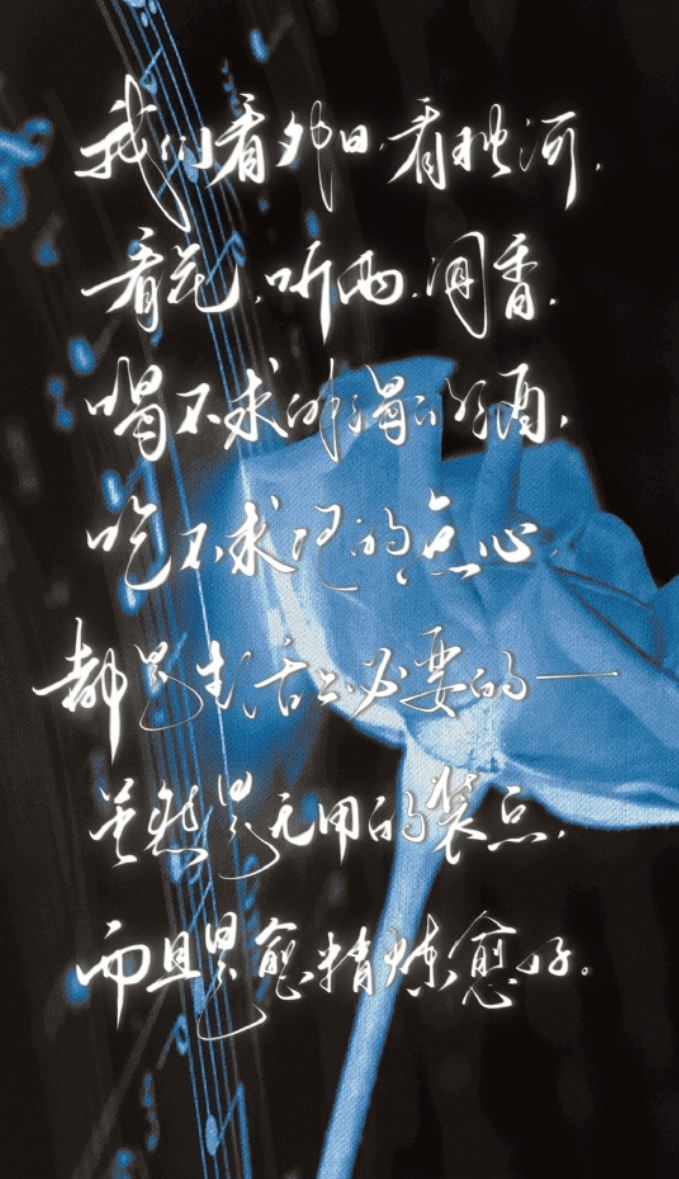 我们看夕阳，看秋河，
看花，听雨，闻香，
喝不求解渴的酒，
吃不求饱的点心，
都是生活上必要的——
虽然是无用的装点，
而且是愈精炼愈好。